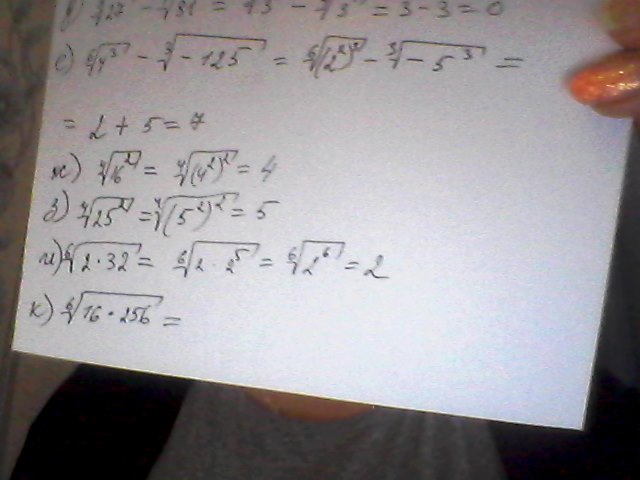 ∛27 - ∜81 = ∛3³ - ∜3⁴ = 3 - 3 = 0
е) ⁶√4³ - ∛-125 = ⁶√(2²)³ - ∛-5³ =
= 2 + 5 = 7
ж) ∜16² = ∜(4²)² = 4
з) ∜25² = ∜(5²)² = 5
и) ⁶√2·32 = ⁶√2·2⁵ = ⁶√2⁶ = 2
к) ⁶√16·256 =